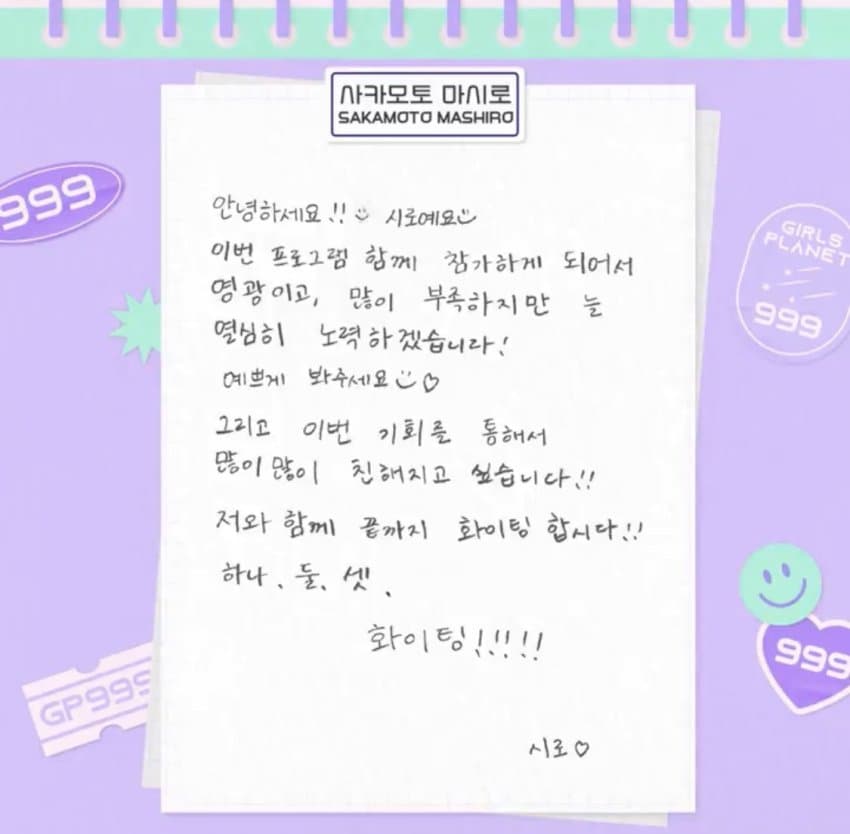 사카모토 마시로
SAKAMOTO MASHIRO
999
안녕하세요!! 시로예요
이번 프로그램 함께 참가하게 되어서
영광이고, 많이 부족하지만 늘
열심히 노력하겠습니다!
예쁘게 봐주세요 ♡
GIRLS
PLANET
999
그리고 이번 기회를 통해서
많이많이 친해지고 싶습니다!!
저와 함께 끝까지 화이팅 합시다!!
하나, 둘, 셋,
화이팅!!!!!
999
GP999
시로♡